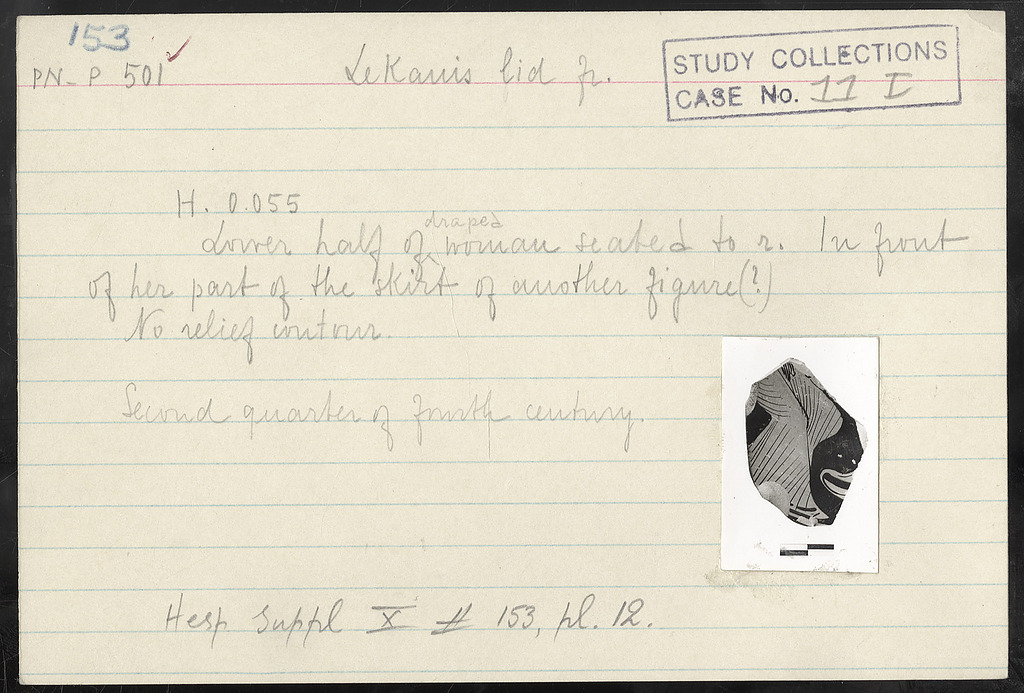 153
PN-P 501
Lekanis lid fr.
STUDY COLLECTIONS
CASE No. 11 I
H. 0.055
Lower half of draped woman seated to r. In front
of her part of the skirt of another figure(?)
No relief contour.
Second quarter of fourth century.
Hesp Suppl X # 153, pl. 12.